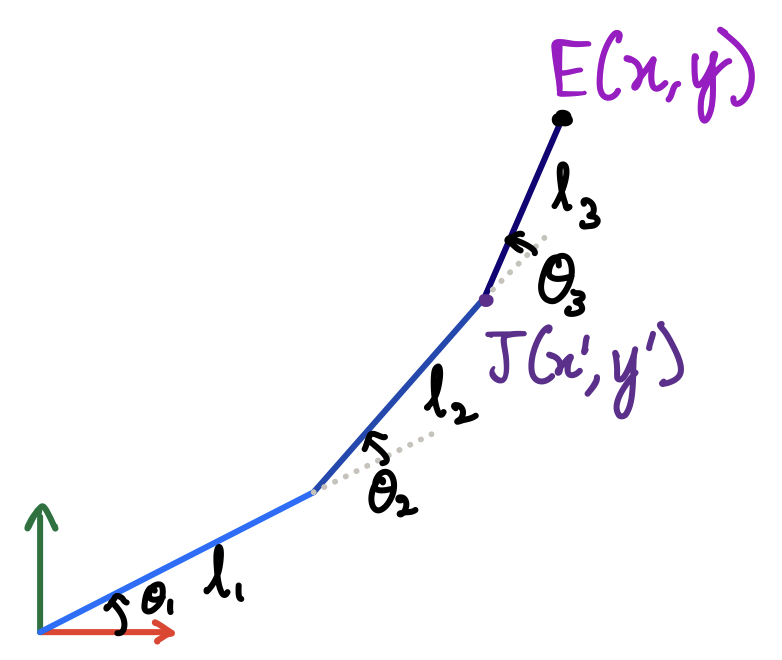 E(x,y)
l₃
θ₃
J(x',y')
l₂
θ₂
l₁
θ₁